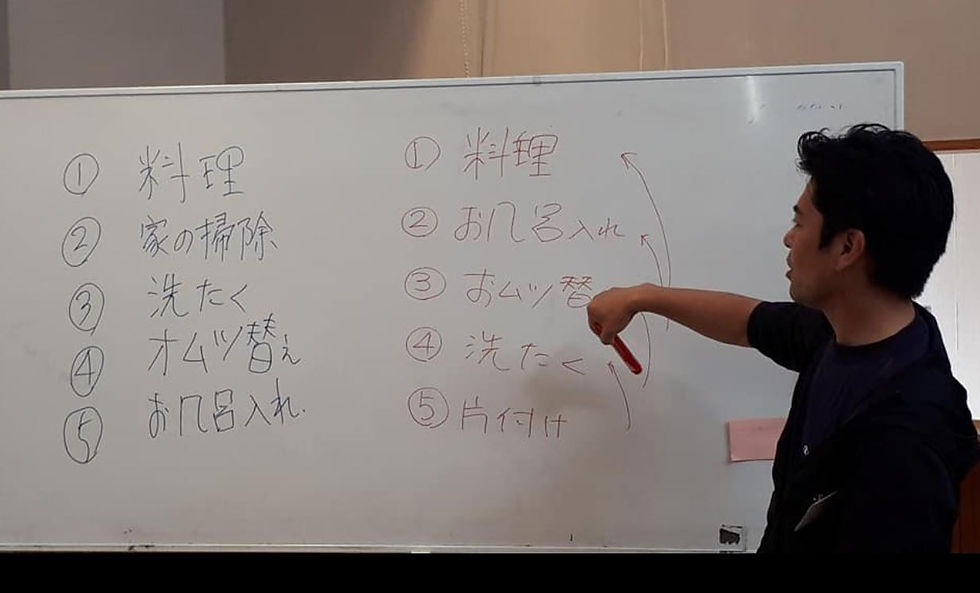 ① 料理
② 家の掃除
③ 洗たく
④ オムツ替え
⑤ お風呂入れ
① 料理
② お風呂入れ
③ おムツ替
④ 洗たく
⑤ 片付け